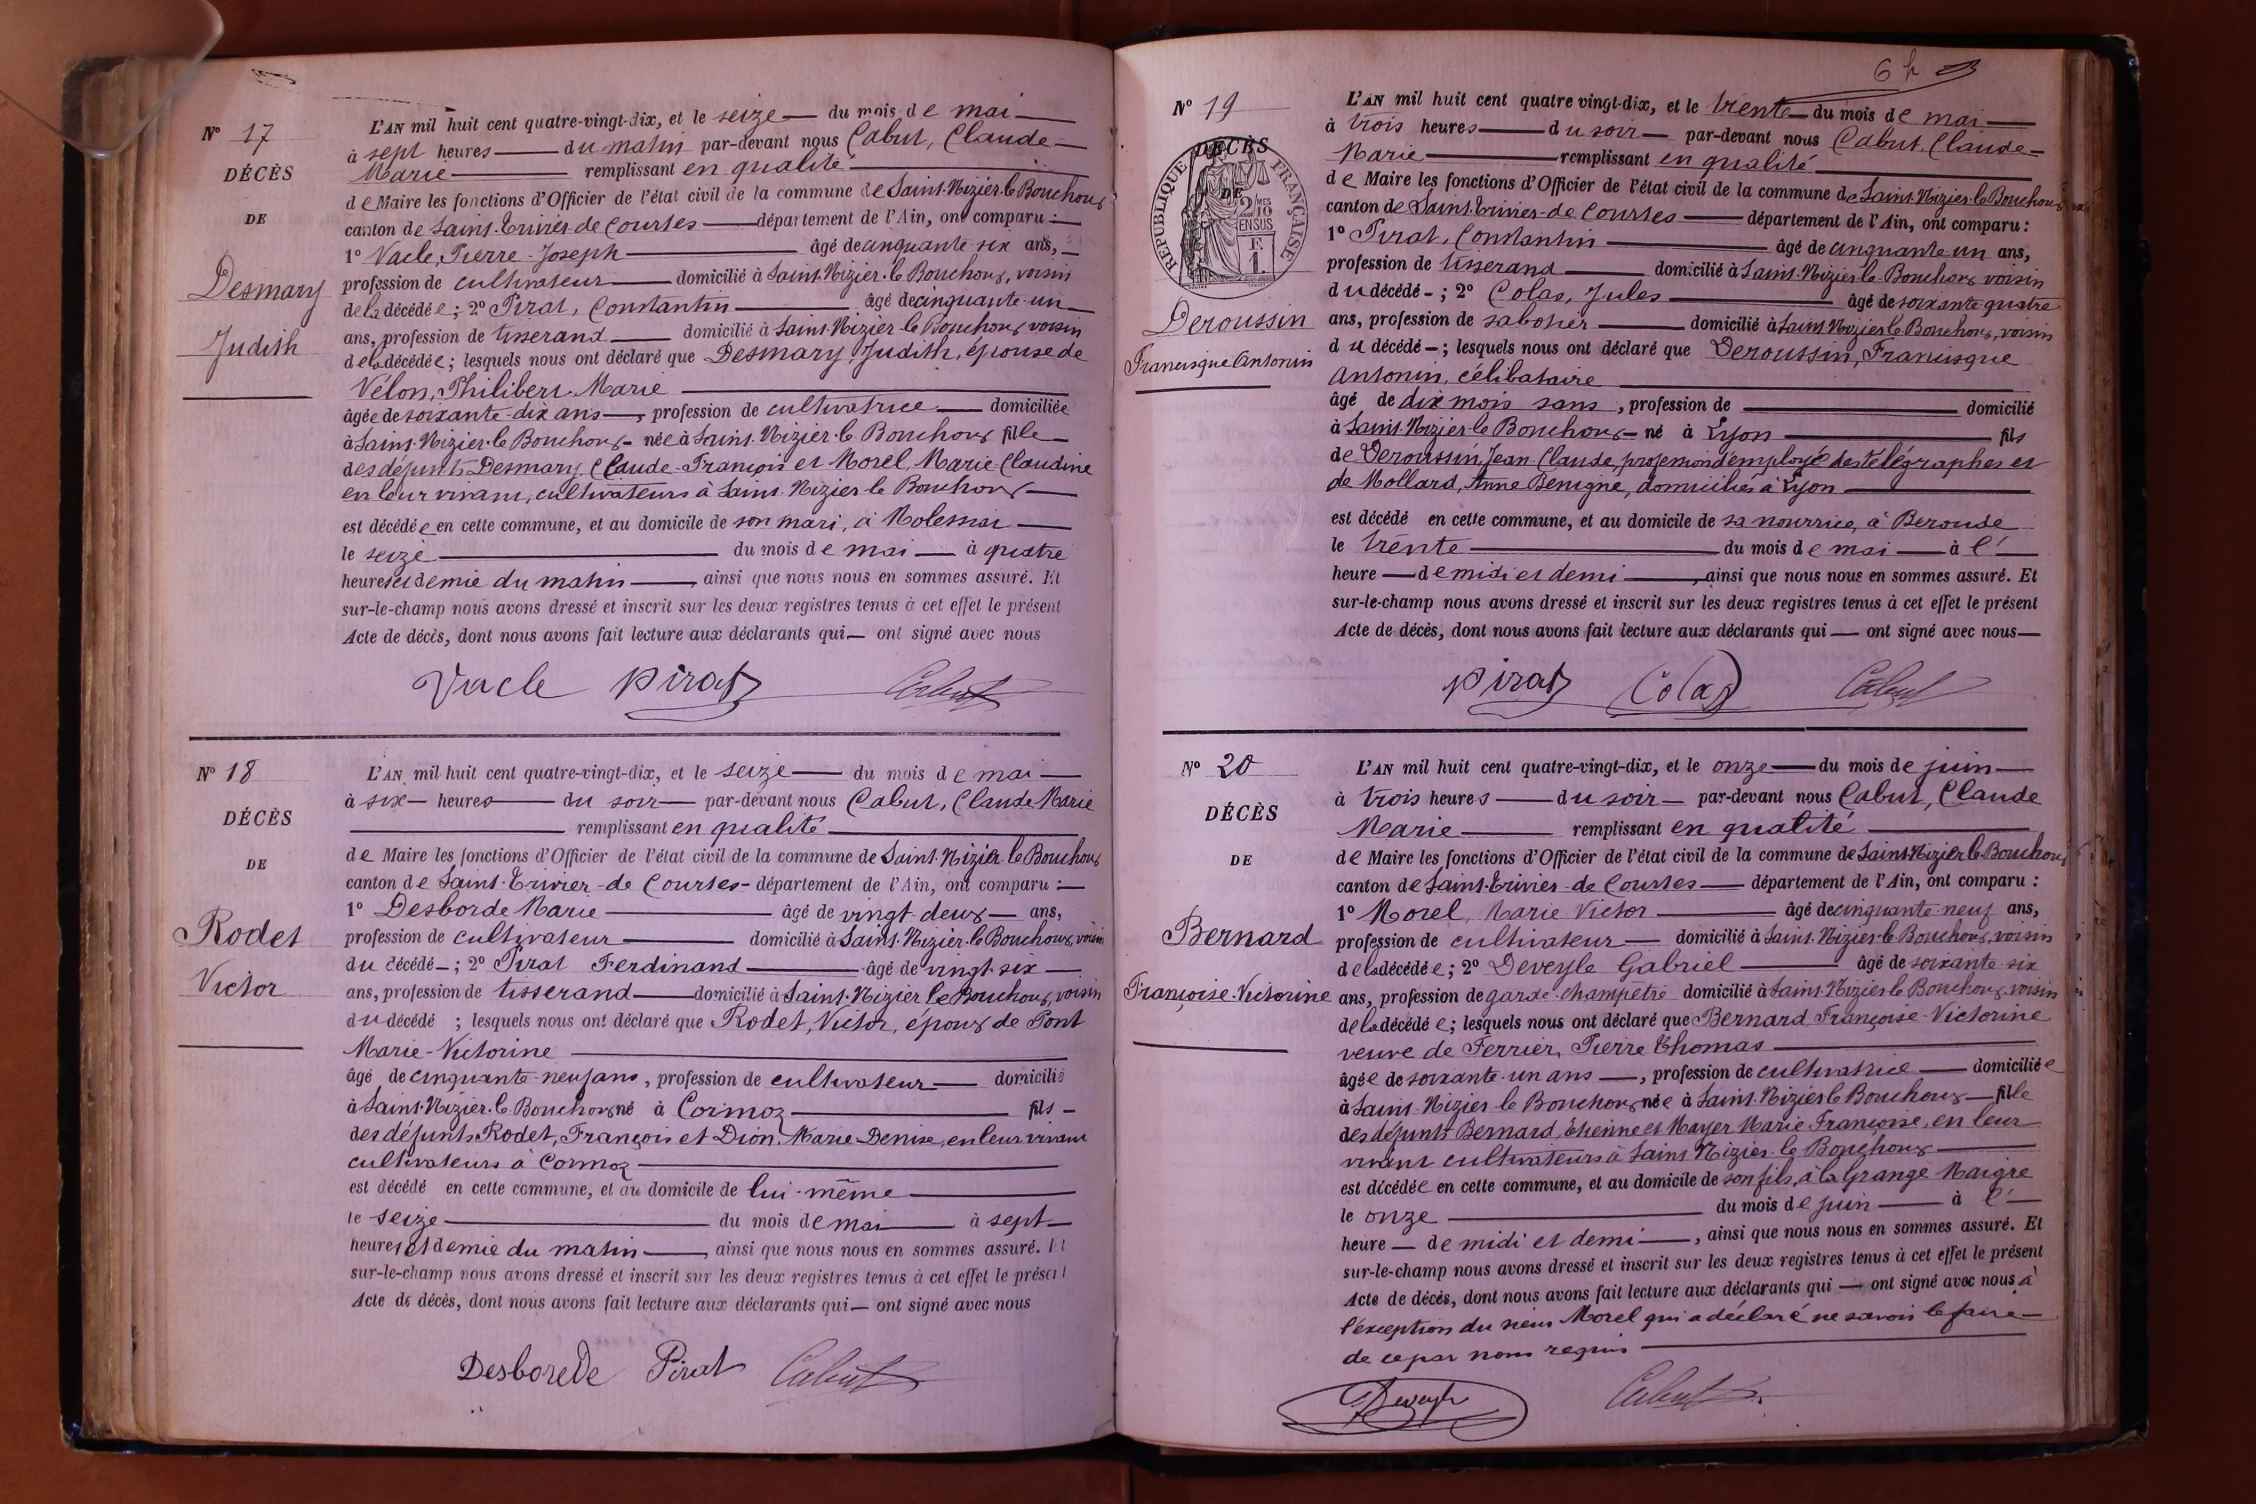 N° 17
DÉCÈS
DE
Desmary
Judith
L'AN mil huit cent quatre-vingt-dix, et le seize du mois de mai
à sept heures du matin par-devant nous Cabut, Claude
Marie remplissant en qualité
de Maire les fonctions d'Officier de l'état civil de la commune de Saint-Nizier-le-Bouchoux
canton de Saint-Trivier-de-Courtes département de l'Ain, ont comparu :
1° Vacle, Pierre-Joseph âgé de cinquante six ans,
profession de cultivateur domicilié à Saint-Nizier-le-Bouchoux, voisin
de la décédée ; 2° Pirat, Constantin âgé de cinquante-un
ans, profession de tisserand domicilié à Saint-Nizier-le-Bouchoux voisin
de la décédée ; lesquels nous ont déclaré que Desmary, Judith, épouse de
Vélon, Philibert-Marie
âgée de soixante-dix ans, profession de cultivatrice domiciliée
à Saint-Nizier-le-Bouchoux née à Saint-Nizier-le-Bouchoux fille
des défunts Desmary, Claude-François et Morel, Marie-Claudine
en leur vivant, cultivateurs à Saint-Nizier-le-Bouchoux
est décédée en cette commune, et au domicile de son mari, à
le seize du mois de mai à quatre
heures et demie du matin, ainsi que nous nous en sommes assuré. Et
sur-le-champ nous avons dressé et inscrit sur les deux registres tenus à cet effet le présent
Acte de décès, dont nous avons fait lecture aux déclarants qui ont signé avec nous
Vacle Pirat Cabut
N° 18
DÉCÈS
DE
Rodet
Victor
L'AN mil huit cent quatre-vingt-dix, et le seize du mois de mai
à six heures du soir par-devant nous Cabut, Claude Marie
remplissant en qualité
de Maire les fonctions d'Officier de l'état civil de la commune de Saint-Nizier-le-Bouchoux
canton de Saint-Trivier-de-Courtes département de l'Ain, ont comparu :
1° Desborde Marie âgé de vingt-deux ans,
profession de cultivateur domicilié à Saint-Nizier-le-Bouchoux, voisin
du décédé ; 2° Pirat Ferdinand âgé de vingt-six
ans, profession de tisserand domicilié à Saint-Nizier le Bouchoux, voisin
du décédé ; lesquels nous ont déclaré que Rodet, Victor, époux de Pont
Marie-Victorine
âgé de cinquante-neuf ans, profession de cultivateur domicilié
à Saint-Nizier-le-Bouchoux né à Cormoz fils
des défunts Rodet, François et Dion, Marie Denise, en leur vivant
cultivateurs à Cormoz
est décédé en cette commune, et au domicile de lui-même
le seize du mois de mai à sept
heures et demie du matin, ainsi que nous nous en sommes assuré. Et
sur-le-champ nous avons dressé et inscrit sur les deux registres tenus à cet effet le présent
Acte de décès, dont nous avons fait lecture aux déclarants qui ont signé avec nous
Desborede Pirat Cabut
6
N° 19
DÉCÈS
DE
RÉPUBLIQUE FRANÇAISE
2/10 MES
EN SUS
F.
1.
Deroussin
Francisque Antonin
L'AN mil huit cent quatre vingt-dix, et le trente du mois de mai
à trois heures du soir par-devant nous Cabut, Claude
Marie remplissant en qualité
de Maire les fonctions d'Officier de l'état civil de la commune de Saint-Nizier-le-Bouchoux
canton de Saint-Trivier-de-Courtes département de l'Ain, ont comparu :
1° Pirat, Constantin âgé de cinquante un ans,
profession de tisserand domicilié à Saint-Nizier-le-Bouchoux voisin
du décédé ; 2° Colas, Jules âgé de soixante quatre
ans, profession de sabotier domicilié à Saint Nizier le Bouchoux, voisin
du décédé ; lesquels nous ont déclaré que Deroussin, Francisque
Antonin, célibataire
âgé de dix mois sans, profession de domicilié
à Saint-Nizier-le-Bouchoux né à Lyon fils
de Deroussin, Jean Claude, profession d'employé des télégraphes et
de Mollard, Anne Benigne, domiciliés à Lyon
est décédé en cette commune, et au domicile de sa nourrice, à
le trente du mois de mai à l'
heure de midi et demi, ainsi que nous nous en sommes assuré. Et
sur-le-champ nous avons dressé et inscrit sur les deux registres tenus à cet effet le présent
Acte de décès, dont nous avons fait lecture aux déclarants qui ont signé avec nous
Pirat Colas Cabut
N° 20
DÉCÈS
DE
Bernard
Françoise-Victorine
L'AN mil huit cent quatre-vingt-dix, et le onze du mois de juin
à trois heures du soir par-devant nous Cabut, Claude
Marie remplissant en qualité
de Maire les fonctions d'Officier de l'état civil de la commune de Saint-Nizier-le-Bouchoux
canton de Saint-Trivier-de-Courtes département de l'Ain, ont comparu :
1° Morel, Marie Victor âgé de cinquante-neuf ans,
profession de cultivateur domicilié à Saint-Nizier-le-Bouchoux, voisin
de la décédée ; 2° Deveyle Gabriel âgé de soixante six
ans, profession de garde-champêtre domicilié à Saint-Nizier le Bouchoux, voisin
de la décédée ; lesquels nous ont déclaré que Bernard Françoise-Victorine
veuve de Ferrier, Pierre Thomas
âgée de soixante-un ans, profession de cultivatrice domiciliée
à Saint-Nizier-le-Bouchoux née à Saint-Nizier le Bouchoux fille
des défunts Bernard, Etienne et Mayer Marie Françoise, en leur
vivant cultivateurs à Saint Nizier-le Bouchoux
est décédée en cette commune, et au domicile de son fils, à la Grange Maigre
le onze du mois de juin à l'
heure de midi et demi, ainsi que nous nous en sommes assuré. Et
sur-le-champ nous avons dressé et inscrit sur les deux registres tenus à cet effet le présent
Acte de décès, dont nous avons fait lecture aux déclarants qui ont signé avec nous à
l'exception du sieur Morel qui a déclaré ne savoir le faire
de ce par nous requis
GDeveyle Cabut